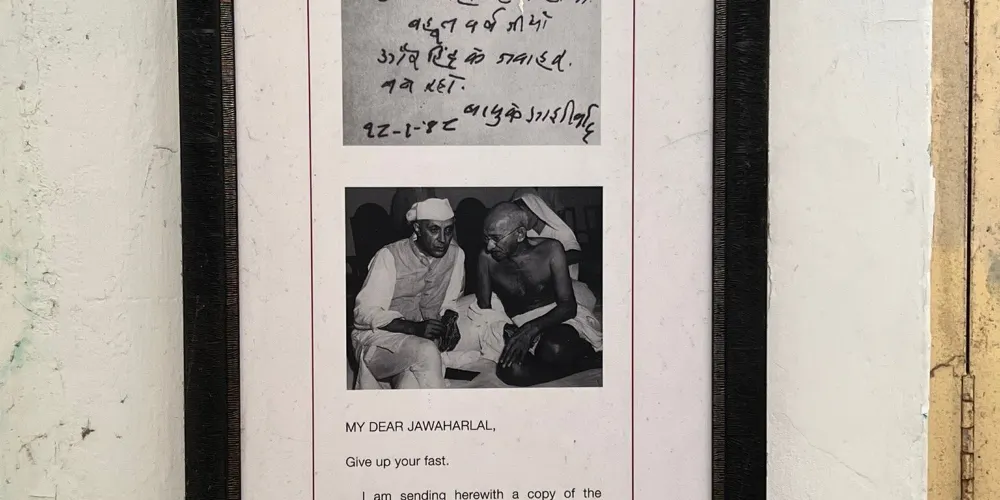 बहुत वर्ष जीयो
और हिंद के जवाहर
बने रहो.
बापु के आशीर्वाद
१८-१-४८
MY DEAR JAWAHARLAL,
Give up your fast.
I am sending herewith a copy of the